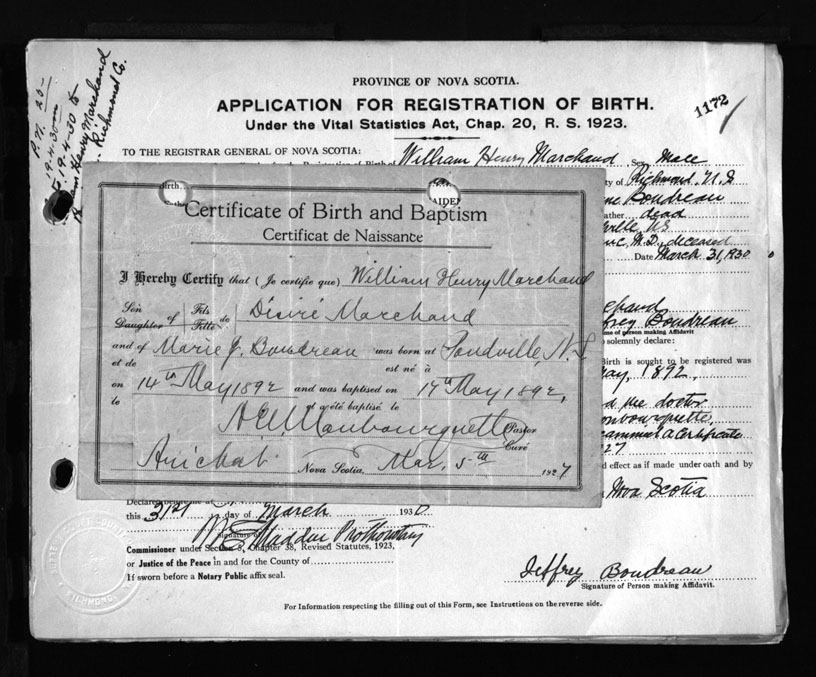 PROVINCE OF NOVA SCOTIA.
APPLICATION FOR REGISTRATION OF BIRTH.
1172
Under the Vital Statistics Act, Chap. 20, R. S. 1923.
P.N. 20-
19-4-30
19-4-30 to
Henry Marchand
Richmond Co.
TO THE REGISTRAR GENERAL OF NOVA SCOTIA:
William Henry Marchand Sex Male
ty of Richmond, N.S
Boudreau
ather dead
ville, NS
M.D., deceased
Date March 31, 1930
Birth
AIDEN
Certificate of Birth and Baptism
Certificat de Naissance
I Hereby Certify that (Je certifie que) William Henry Marchand
Son Daughter of Fils Fille de Désiré Marchand
and of et de Marie J. Boudreau was born at est né à Poudville, N.S
on le 14th May 1892 and was baptised on et a été baptisé le 17th May 1892,
Pastor
Curé
Arichat Nova Scotia, Mar, 5th 1927
frey Boudreau
me of person making Affidavit
solemnly declare:
Birth is sought to be registered was
ay, 1892,
the doctor
a Certificate
27
d effect as if made under oath and by
Nova Scotia
Declared before me at
this 31st day of March 1930
Prothonotary
Signature
Commissioner under Section 8, Chapter 38, Revised Statutes, 1923,
or Justice of the Peace in and for the County of
If sworn before a Notary Public affix seal.
Jeffrey Boudreau
Signature of Person making Affidavit.
For Information respecting the filling out of this Form, see Instructions on the reverse side.